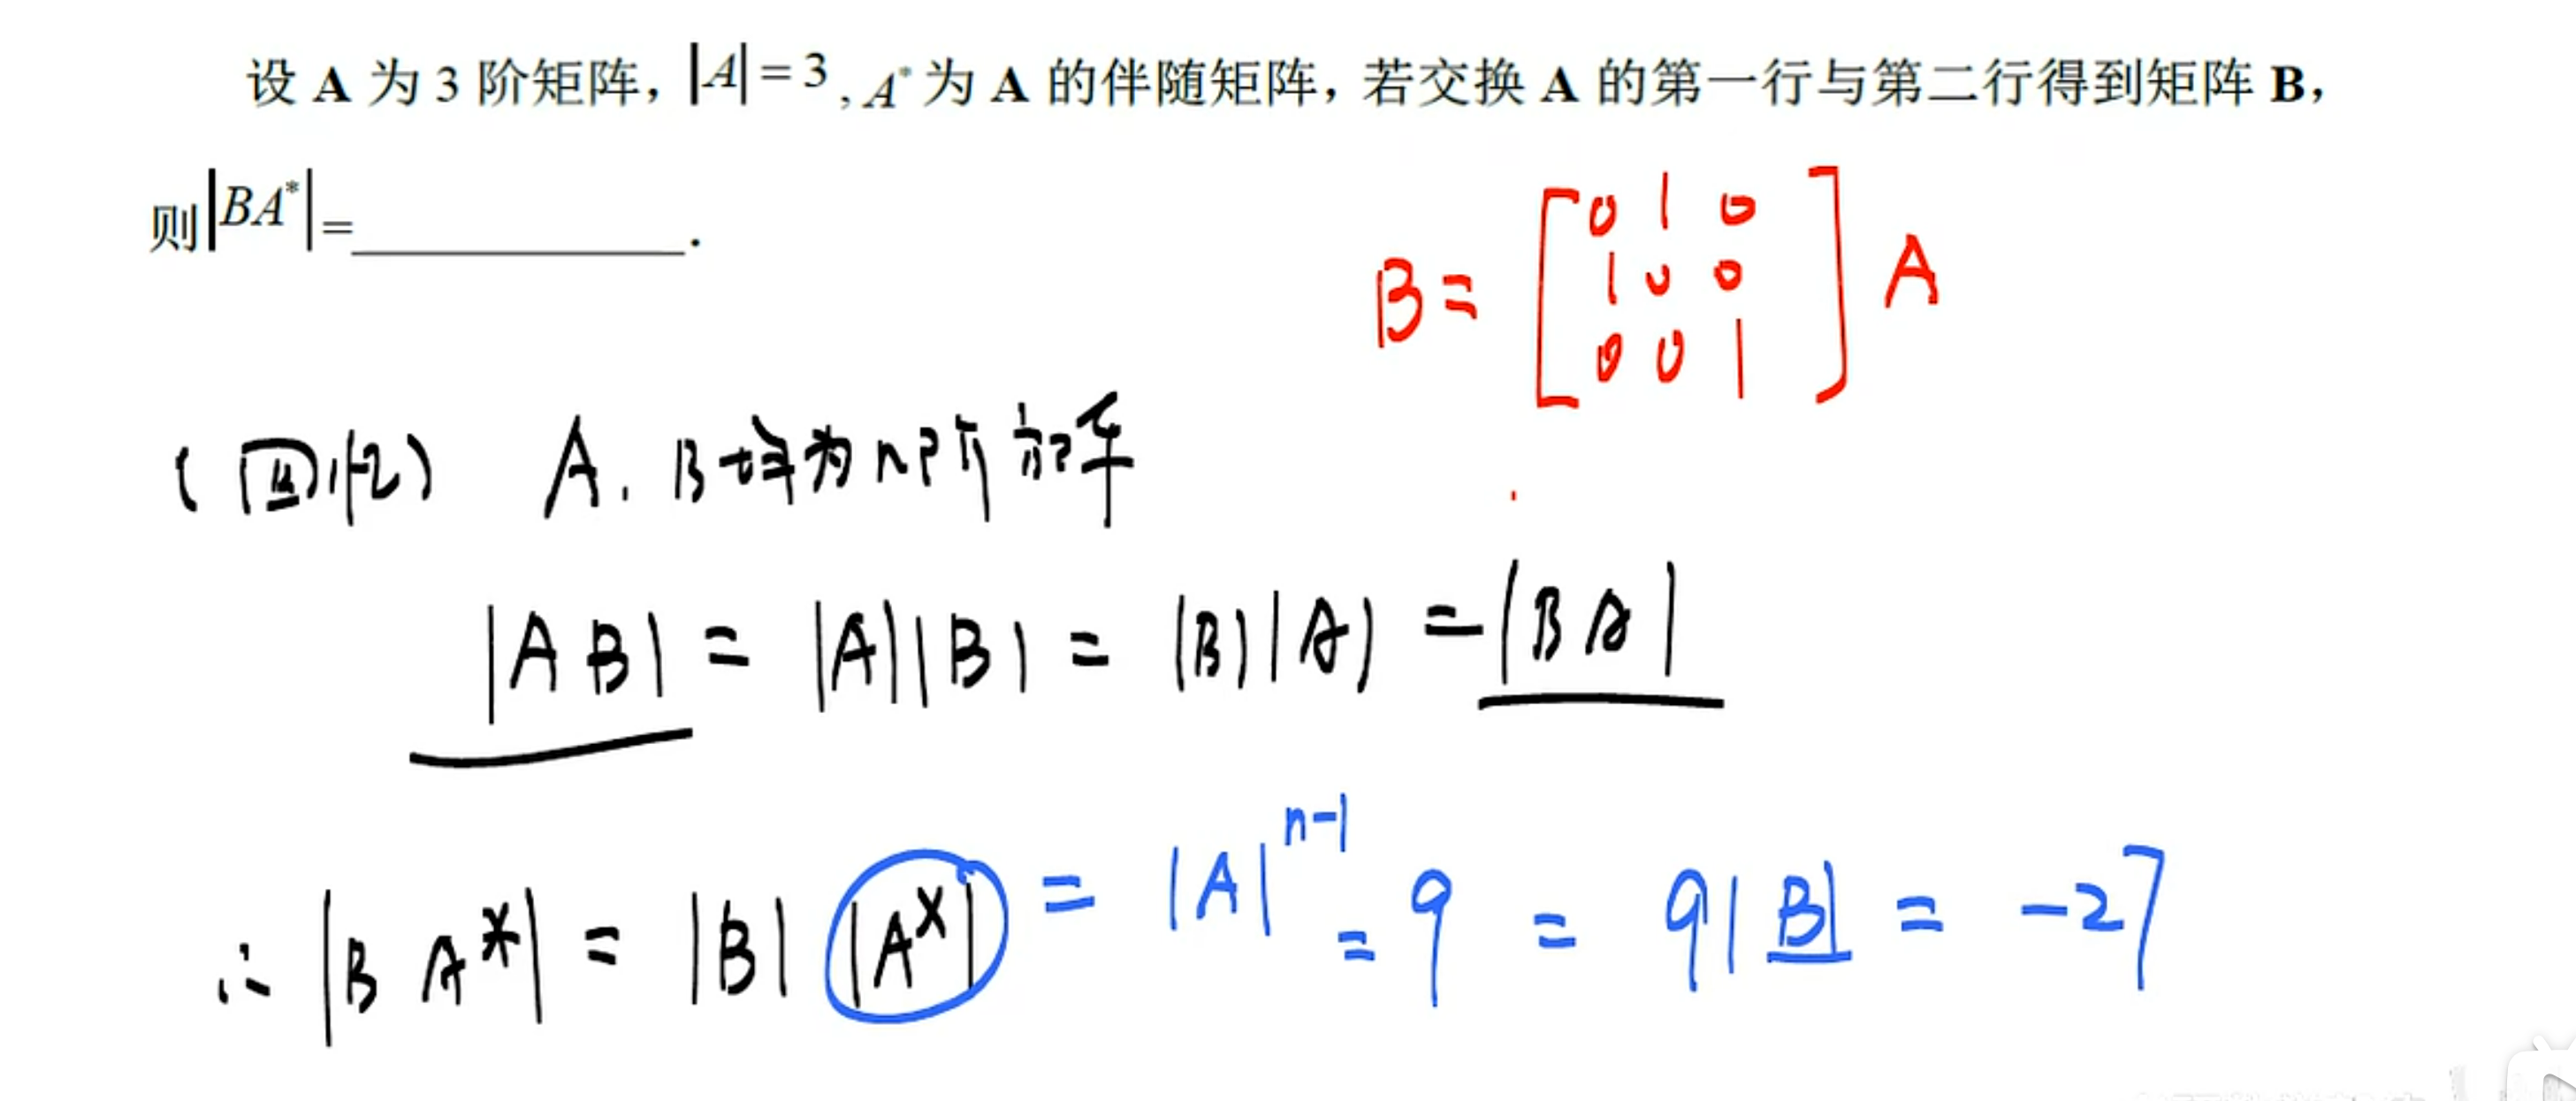 设 A 为 3 阶矩阵，|A|=3，A* 为 A 的伴随矩阵，若交换 A 的第一行与第二行得到矩阵 B，
则|BA*|=__________.
B= [0 1 0
1 0 0
0 0 1] A
(回忆) A. B均为n阶方阵
|AB| = |A||B| = |B||A| = |BA|
∴ |BA*| = |B||A*| = |A|^{n-1} = 9 = 9|B| = -27